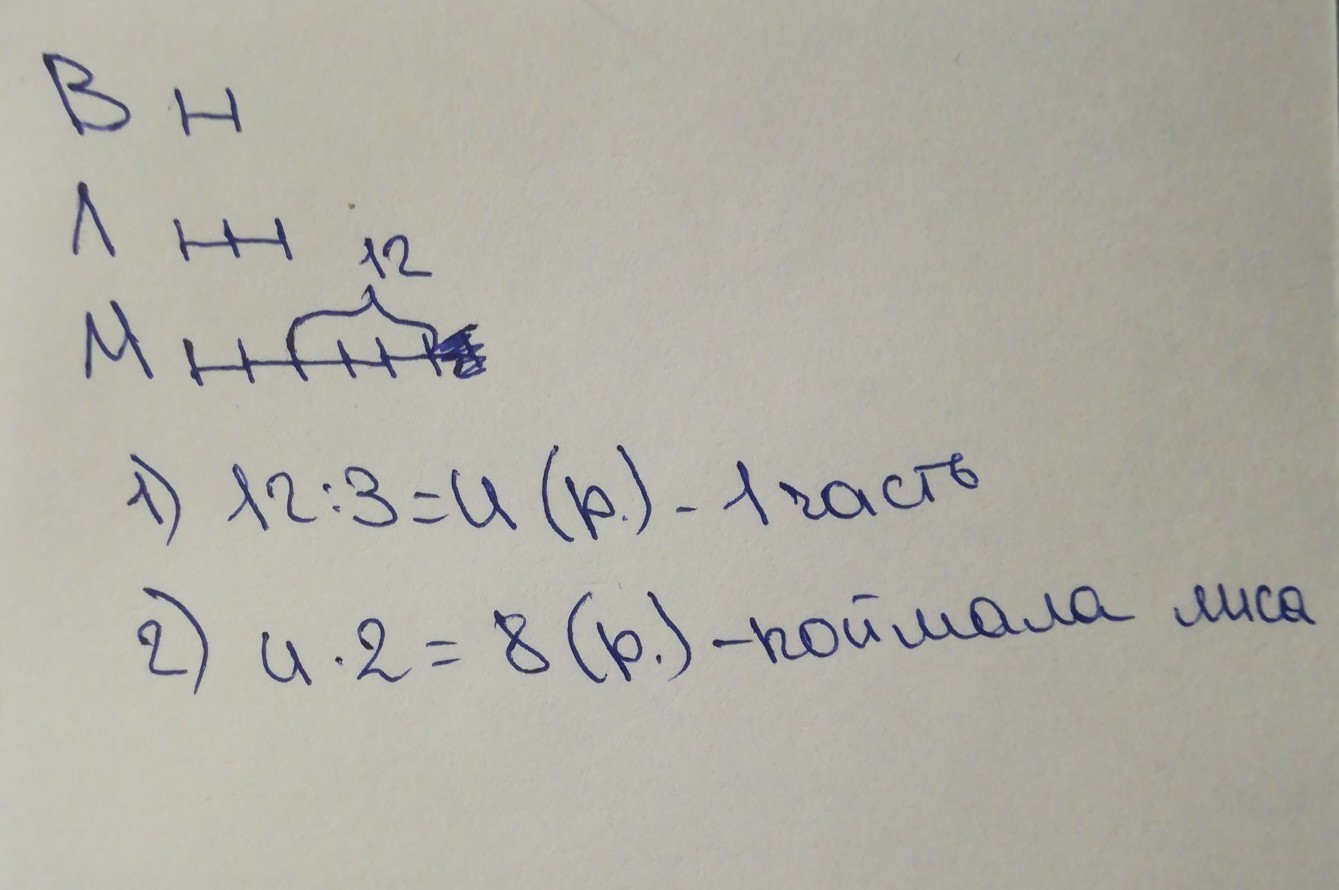 В
Л
12
М
1) 12:3=4 (р.) - 1 часть
2) 4·2=8 (р.) - поймала лиса